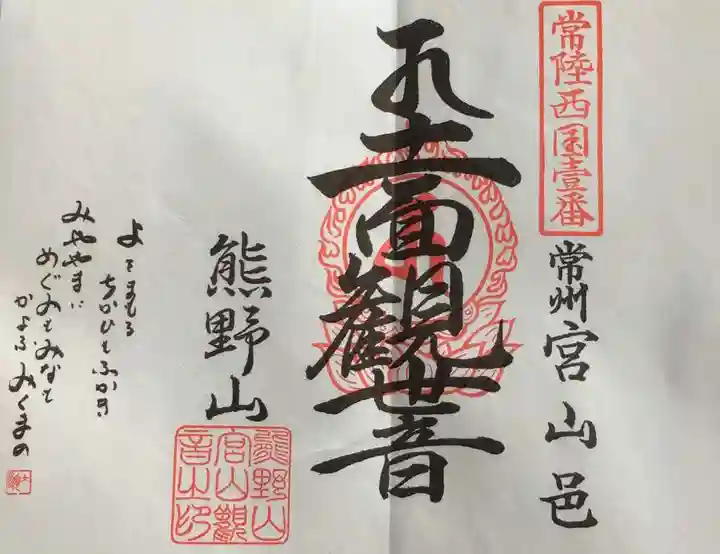 常陸西国壹番
常州宮山邑
十一面観世音
熊野山
熊野山
宮山觀
音之印
よをまもる
ちかひもふかき
みややまに
めぐみもみなと
かよふみくまの